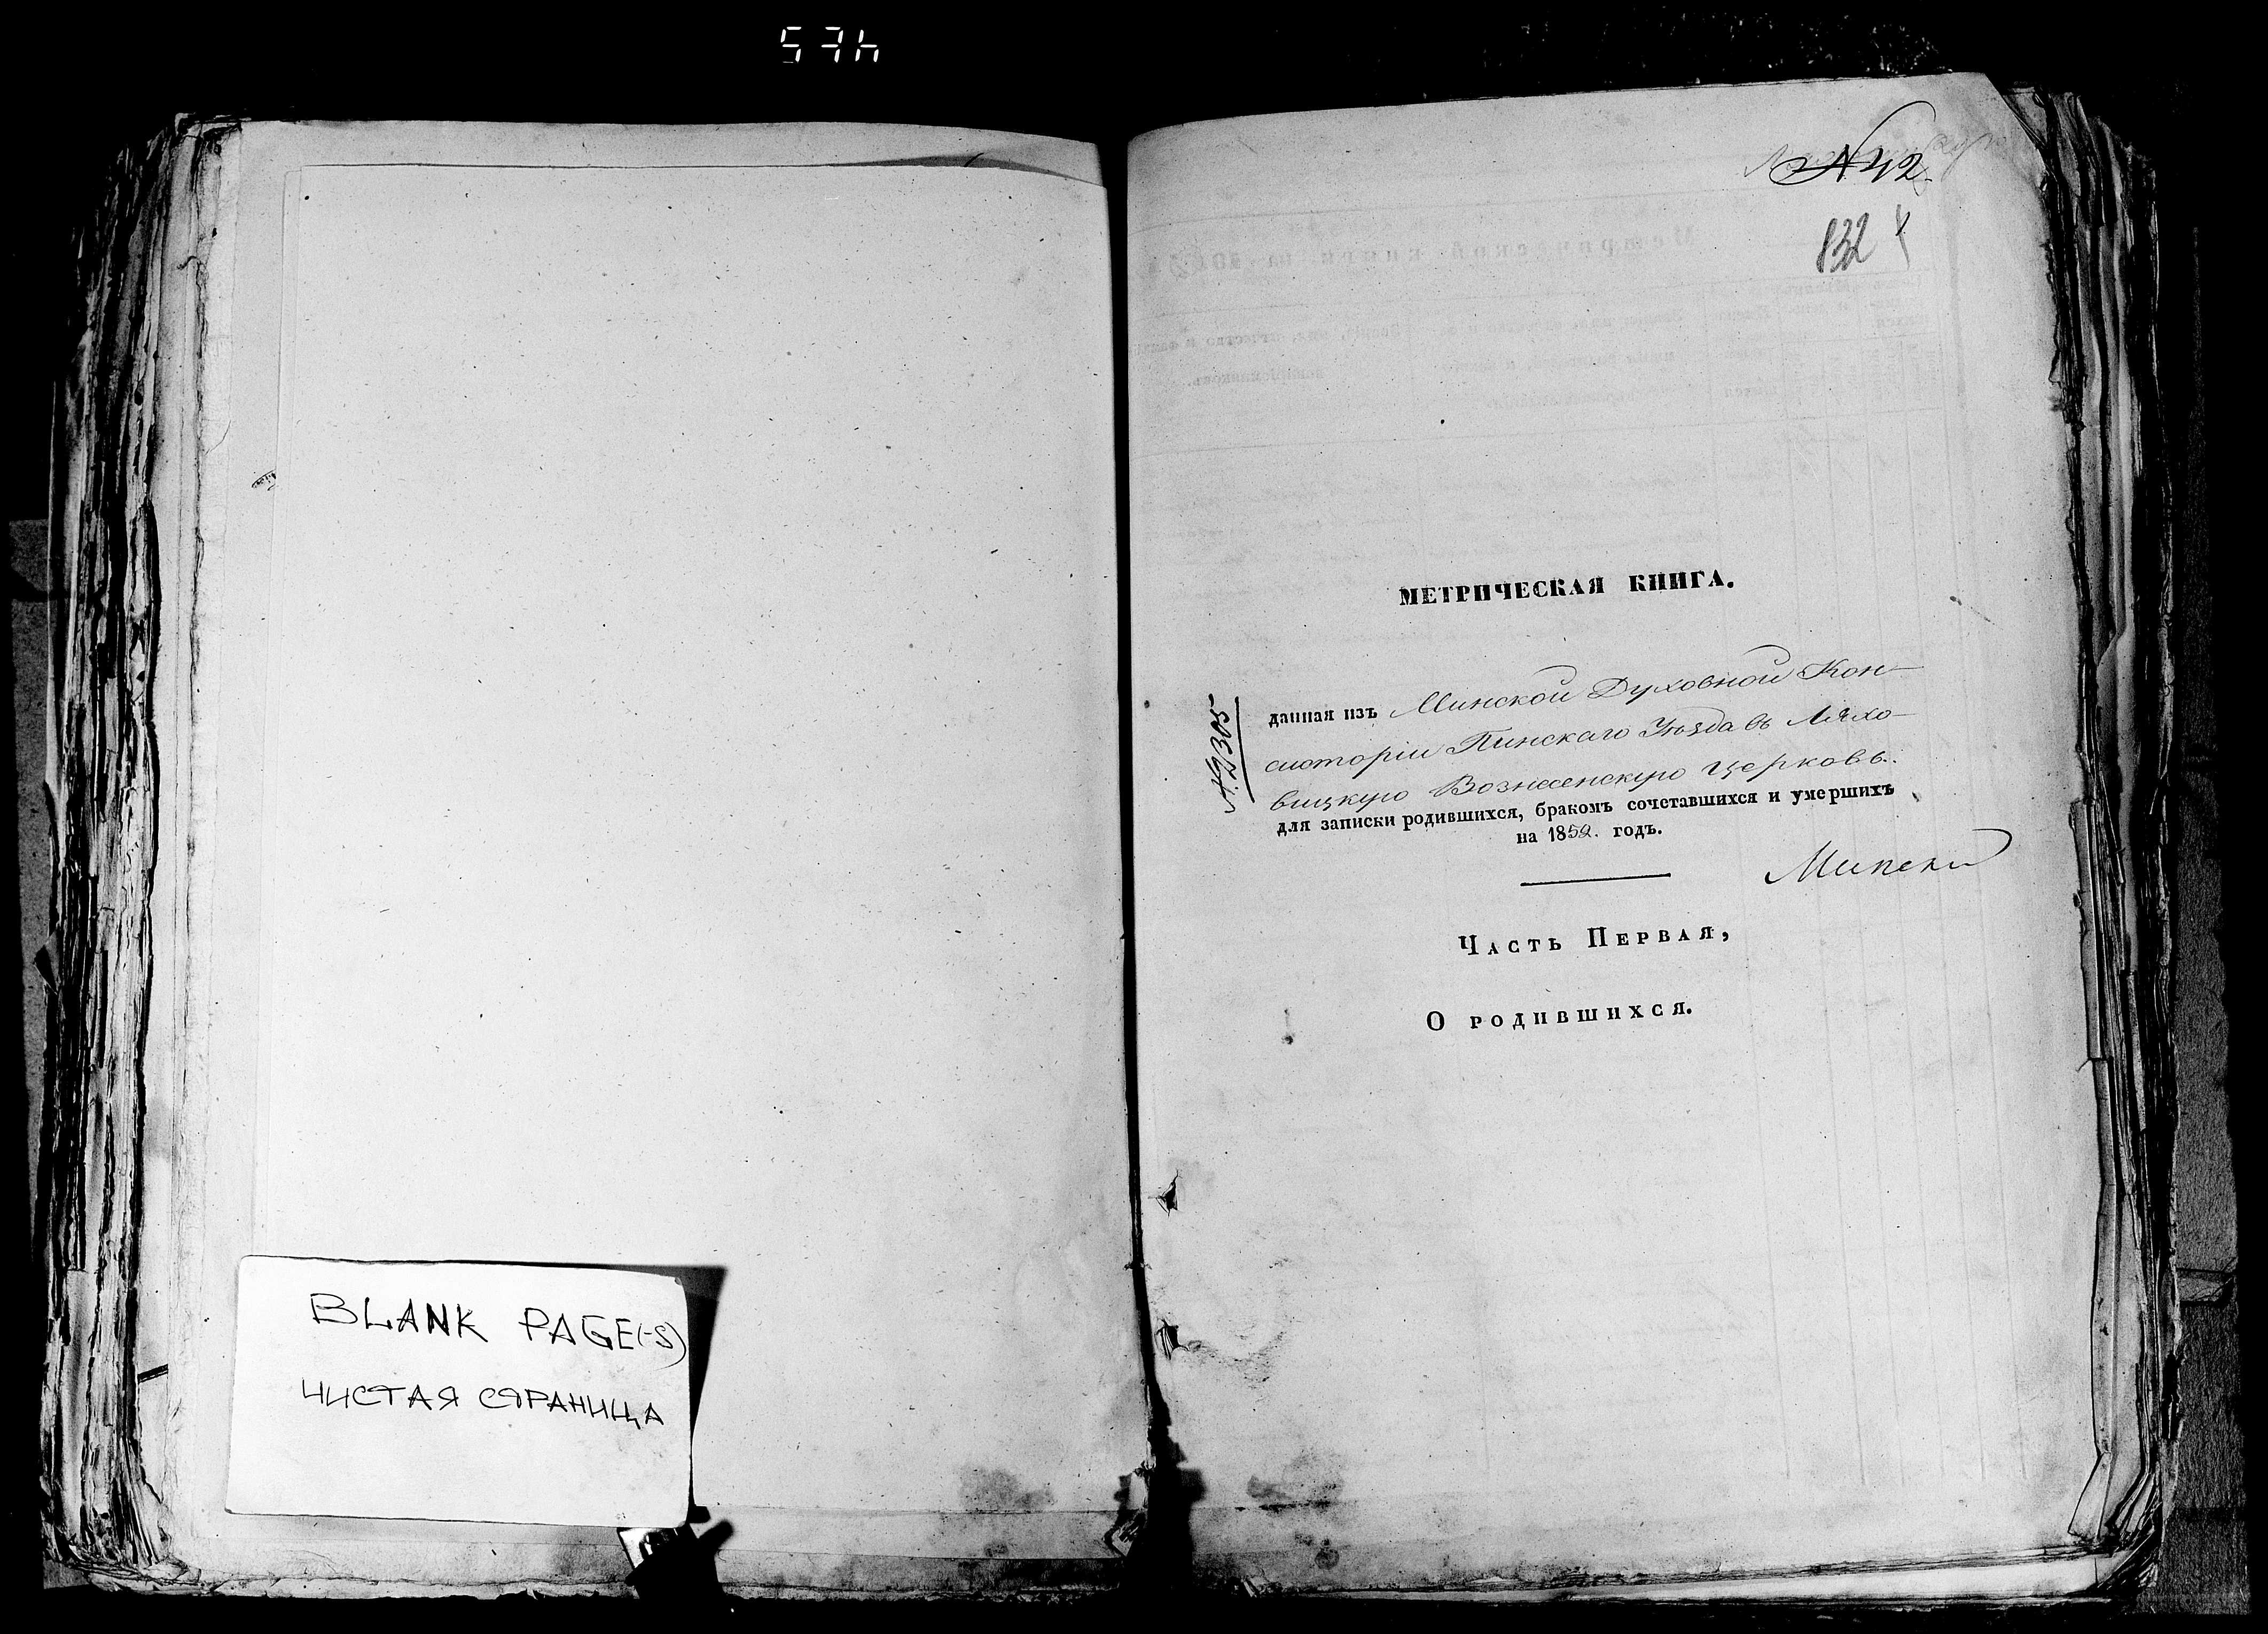 574
BLANK PAGE(-S)
ЧИСТАЯ СТРАНИЦА
№ 42
132
МЕТРИЧЕСКАЯ КНИГА.
№ 9305
данная изъ Минской Духовной Кон-
систоріи Пинскаго Уѣзда въ Ляхо-
вицкую Вознесенскую церковь.
для записки родившихся, бракомъ сочетавшихся и умершихъ
на 1852. годъ.
Часть Первая,
О родившихся.